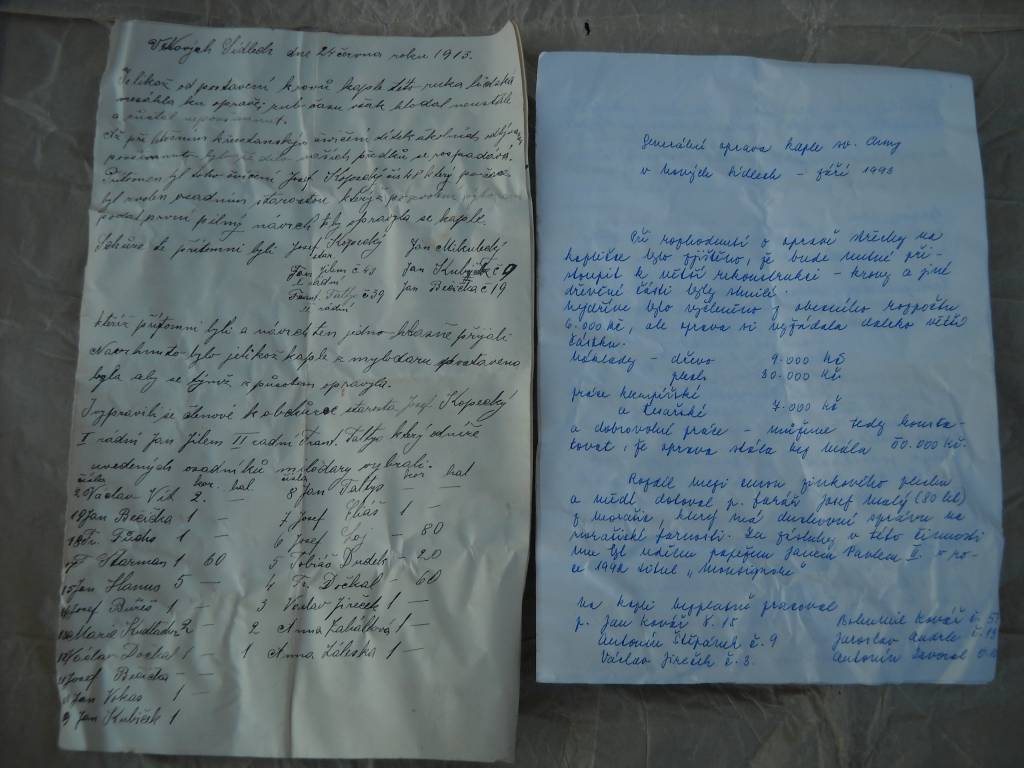 V Nových Sídlech dne 24 června roku 1913.
Jelikož od postavení krovů kaple této ruka lidská
nesáhla ku opravě zub času však hlodal neustále
a zůstal
Až při cvičení dítek školních
našich předků se rozpadává.
Přítomen byl toho cvičení Josef Kopecký který
byl zvolen osadním starostou který po
podal první pilný návrh by opravila se kaple.
Schůze té přítomni byli Josef Kopecký Jan Mikulecký
star.
Jan Jílem č 43 Jan Kubíček č 9
I radní
Frant. Faltys č 39 Jan Bečička č 19
II radní
kteříž přítomni byli a návrh ten jedno-hlasně přijali
Navrhnuto bylo jelikož kaple z mylodarů postavena
byla aby se týmž způsobem opravila.
Vypravili se členové k obchůzce starosta Josef Kopecký
I radní Jan Jílem II radní Frant. Faltys který od níže
uvedených osadníků milodary vybrali.
číslo kor. hal číslo kor. hal
20 Václav Vik 2. — 8 Jan Faltys — —
19 Jan Bečička 1 — 7 Josef Eliáš 1 —
18 Fr. 1 — 6 Josef — 80
17 F. Starman 1 60 5 Tobiáš Dudek — 20
15 Jan Hanus 5 — 4 Fr. Dočkal — 60
Josef Bureš 1 — 3 Václav Jireček 1 —
Marie Kudladov 2 2 Anna Zahálková 1 —
Václav Dočkal 1 — 1 Anna Záleska 1 —
11 Josef Bečička — —
Jan Vokas 1 —
9 Jan Kubíček 1
Generální oprava kaple sv. Anny
v Nových Sídlech – září 1993
Při rozhodnutí o opravě střechy na
kapličce bylo zjištěno, že bude nutné při-
stoupit k větší rekonstrukci – krovy a jiné
dřevěné části byly shnilé.
Nejdříve bylo vyčleněno z obecního rozpočtu
6.000 Kč, ale oprava si vyžádala daleko větší
částku.
Náklady – dřevo 9.000 Kč
plech 30.000 Kč
práce klempířské
a tesařské 7.000 Kč
a dobrovolné práce – můžeme tedy konsta-
tovat, že oprava stála bez mála 50.000 Kč.
Rozdíl mezi cenou zinkového plechu
a mědí dotoval p. farář Josef Malý (80 let)
z Morašic, který má duchovní správu na
morašické farnosti. Za zásluhy v této činnosti
mu byl udělen papežem Janem Pavlem II. v ro-
ce 1992 titul „Monsignore"
Na kapli bezplatně pracoval
p. Jan Kovář č. 15 Bohumil Kovář č. 51
Antonín Štěpánek č. 9 Jaroslav Andrle č. 19
Václav Jireček č. 3. Antonín